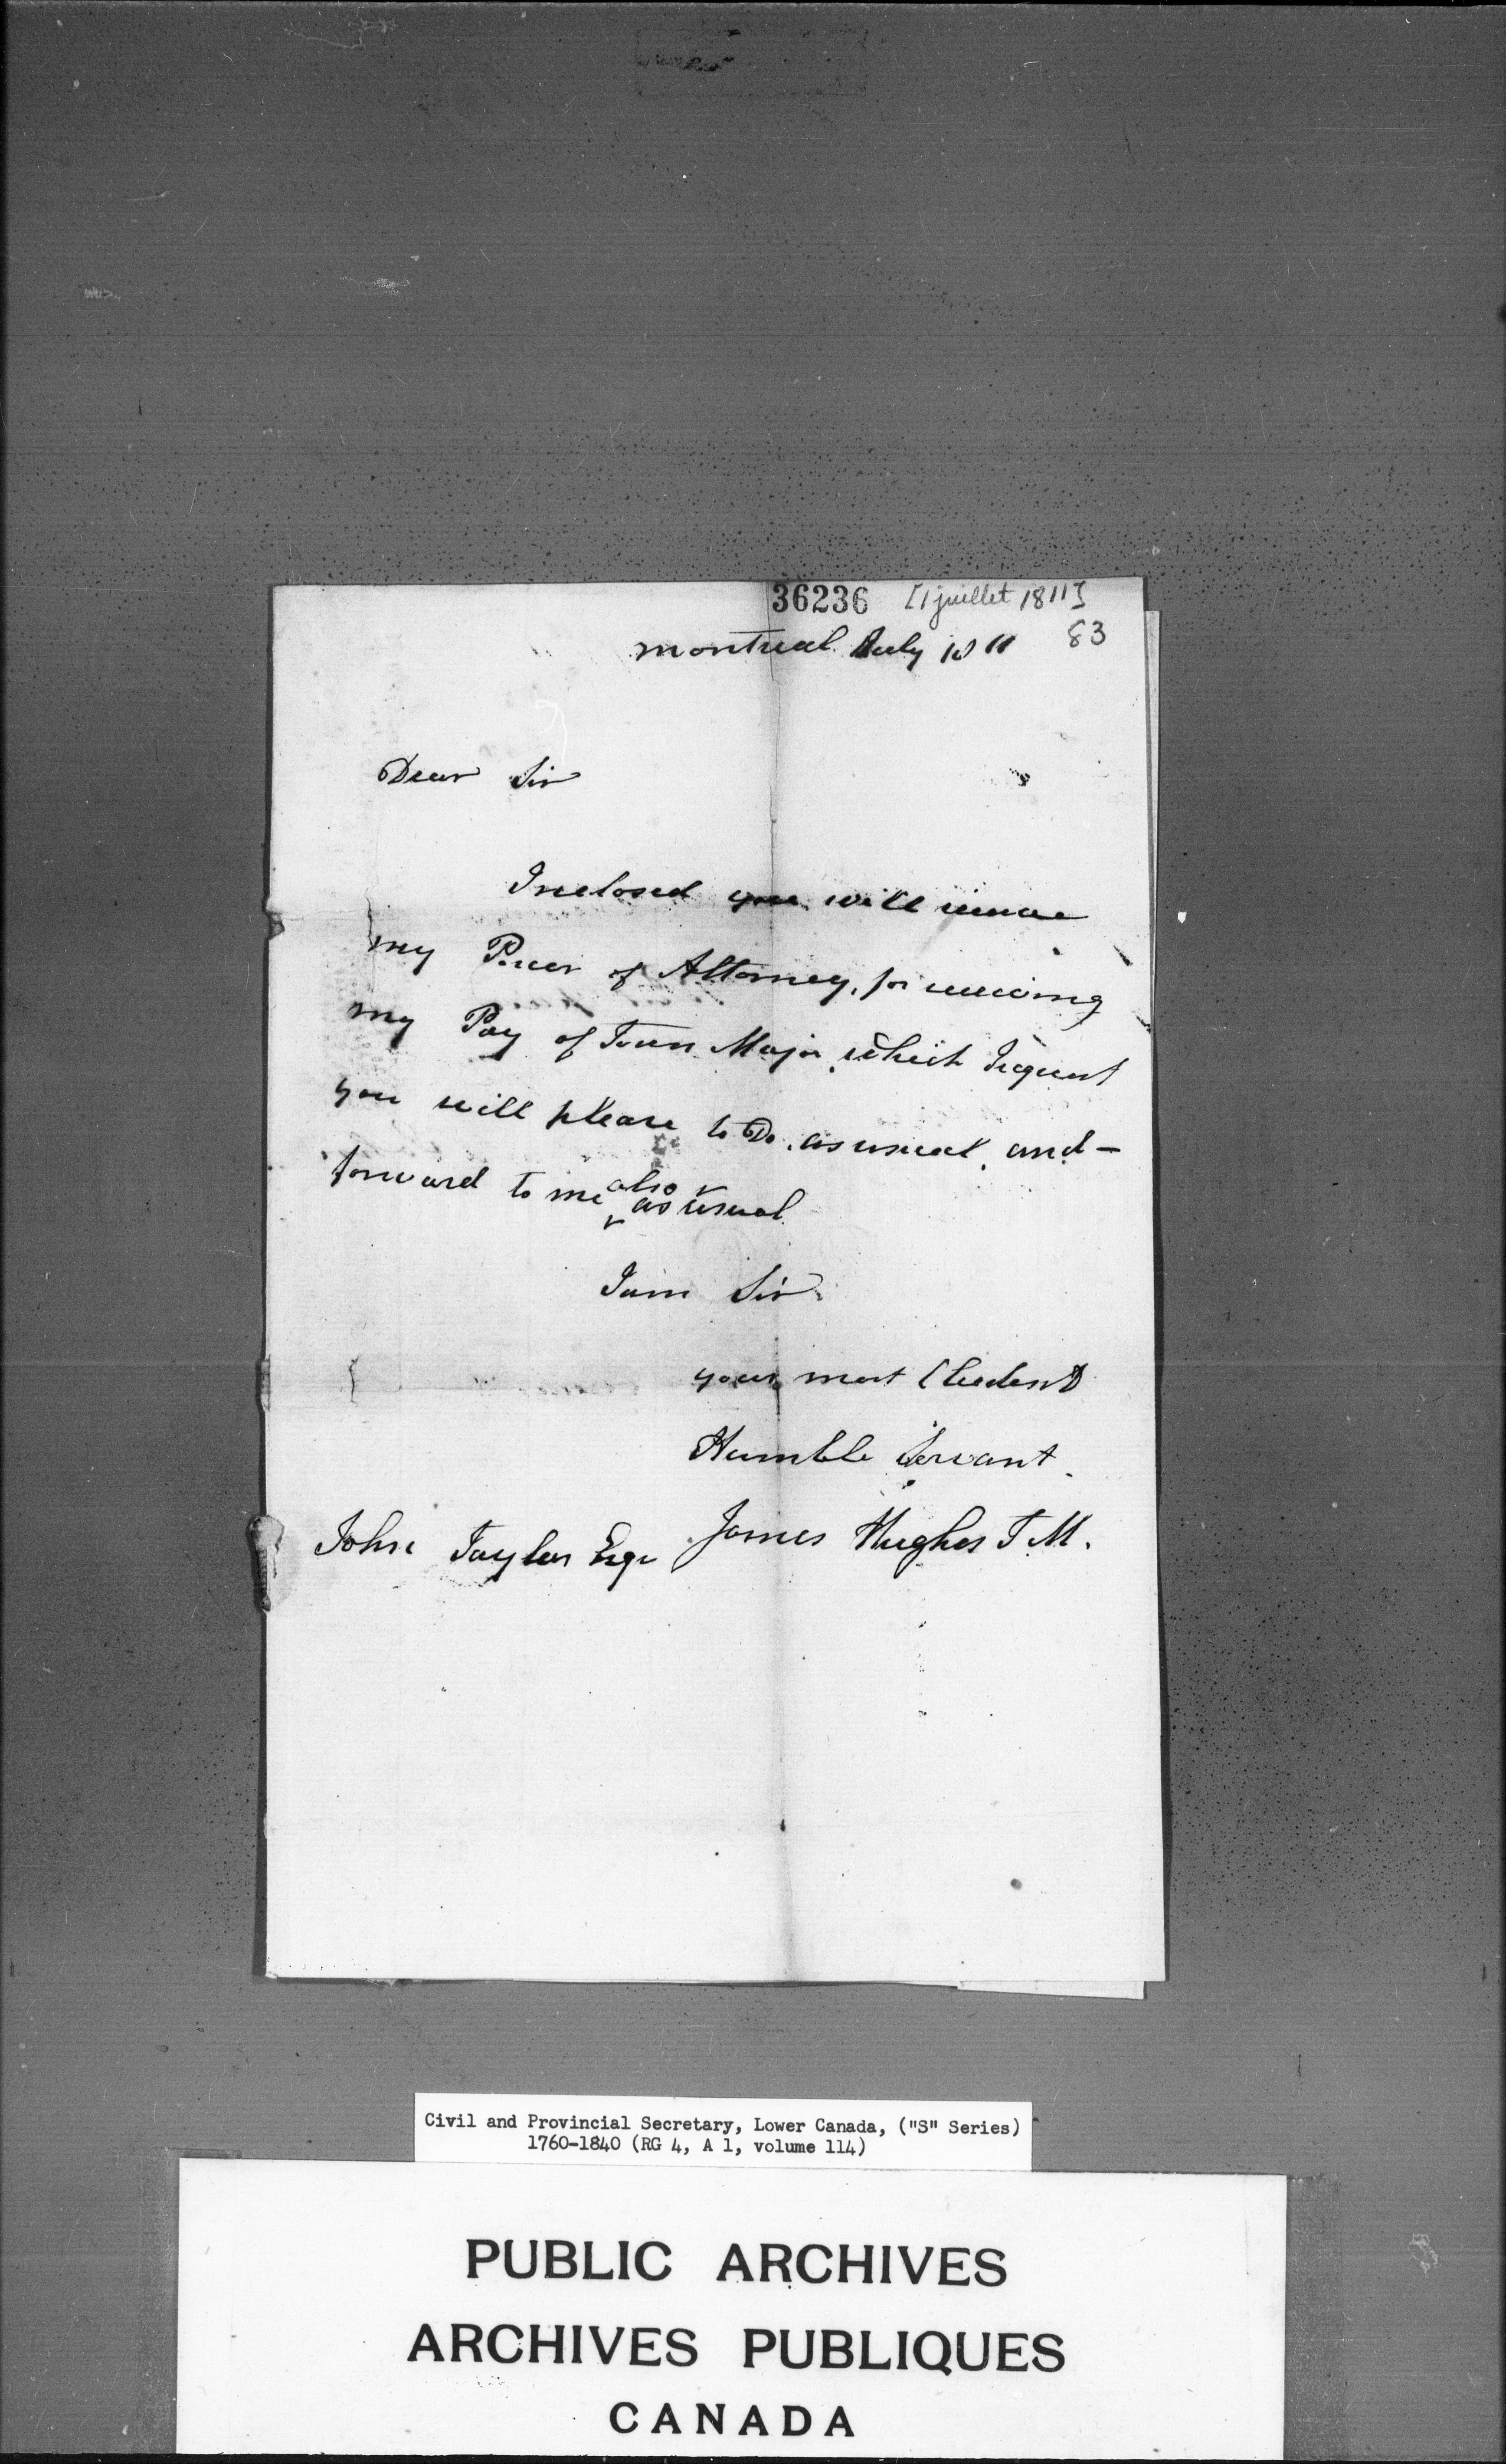 36236 [1 juillet 1811]
83
Montreal July 1811
Dear Sir
Inclosed you will receive
my Power of Attorney, for receiving
my Pay of Town Major, which I request
you will please to Do, as usual, and -
forward to me also as usual
I am Sir
your most Obedent
Humble Servant
James Hughes T M.
John Taylor Esqr
Civil and Provincial Secretary, Lower Canada, ("S" Series)
1760-1840 (RG 4, A 1, volume 114)
PUBLIC ARCHIVES
ARCHIVES PUBLIQUES
CANADA